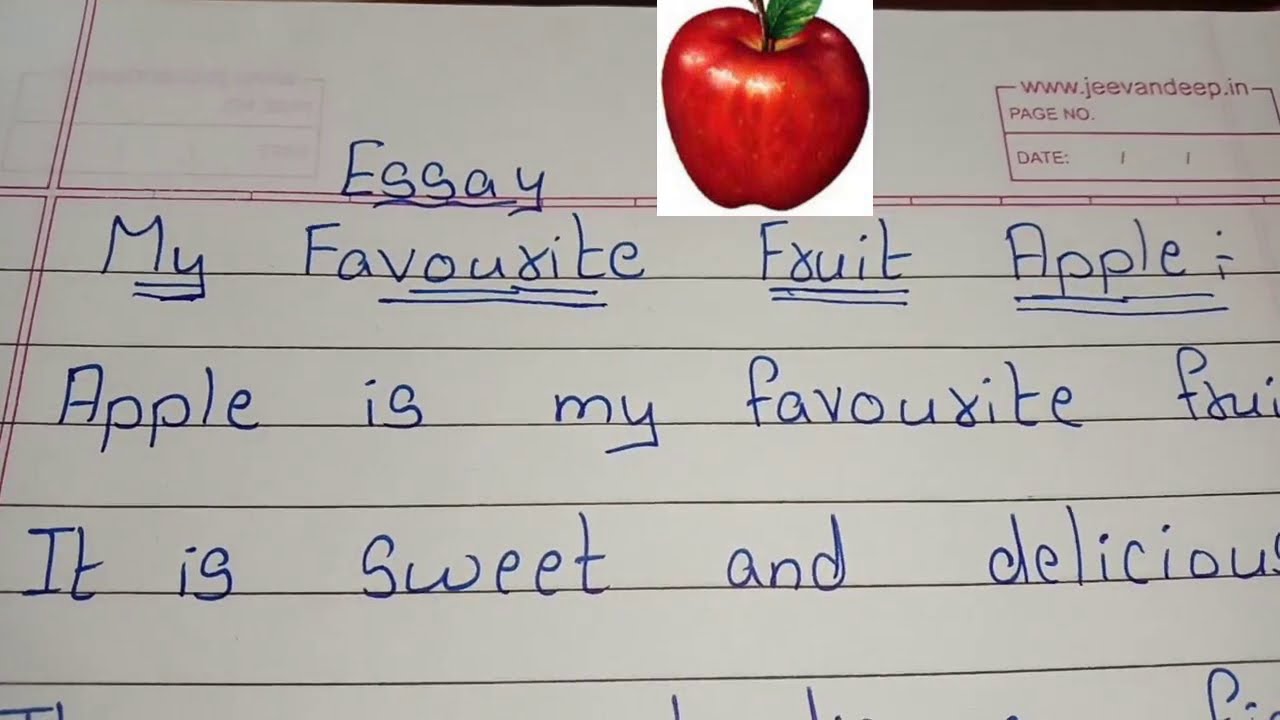 www.jeevandeep.in
PAGE NO.
DATE: / /
Essay
My Favourite Fruit Apple:
Apple is my favourite frui
It is sweet and delicious